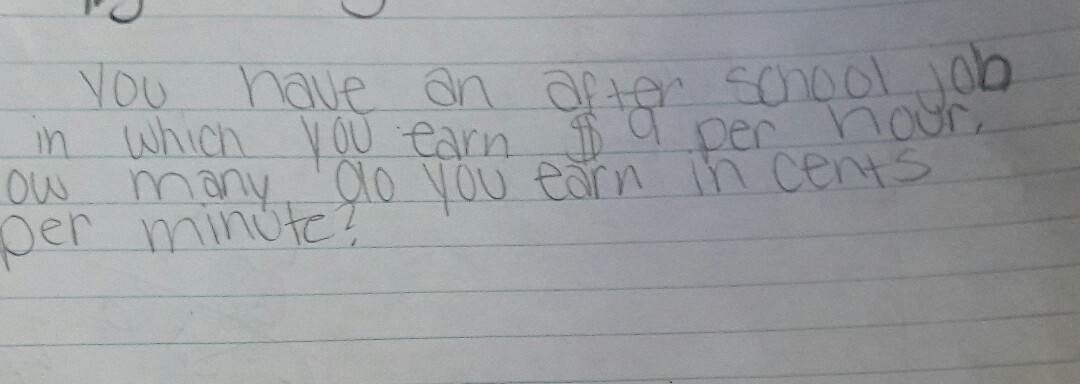 you have an after school job
in which you earn $ 9 per hour.
ow many do you earn in cents
per minute?